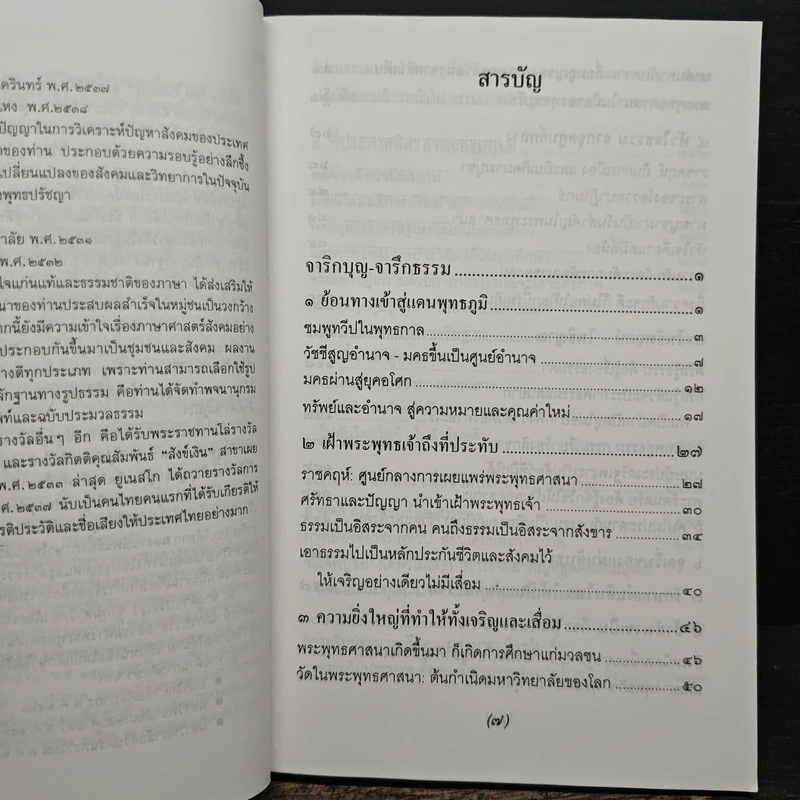 ครินทร์ พ.ศ.๒๕๓๗
แหง พ.ศ.๒๕๓๘
ปัญญาในการวิเคราะห์ปัญหาสังคมของประเทศ
ของท่าน ประกอบด้วยความรอบรู้อย่างลึกซึ้ง
เปลี่ยนแปลงของสังคมและวิทยาการในปัจจุบัน
พุทธปรัชญา
าลัย พ.ศ.๒๕๓๑
พ.ศ.๒๕๓๒
ใจแก่นแท้และธรรมชาติของภาษา ได้ส่งเสริมให้
นาของท่านประสบผลสำเร็จในหมู่ชนเป็นวงกว้าง
ากนี้ยังมีความเข้าใจเรื่องภาษาศาสตร์สังคมอย่าง
ประกอบกันขึ้นมาเป็นชุมชนและสังคม ผลงาน
างดีทุกประเภท เพราะท่านสามารถเลือกใช้รูป
ลักฐานทางรูปธรรม คือท่านได้จัดทำพจนานุกรม
พท์และฉบับประมวลธรรม
รางวัลอื่นๆ อีก คือได้รับพระราชทานโล่รางวัล
และรางวัลกิตติคุณสัมพันธ์ "สังข์เงิน" สาขาเผย
พ.ศ.๒๕๓๓ ล่าสุด ยูเนสโก ได้ถวายรางวัลการ
๒๕๓๗ นับเป็นคนไทยคนแรกที่ได้รับเกียรติให้
รติประวัติและชื่อเสียงให้ประเทศไทยอย่างมาก
สารบัญ
จาริกบุญ-จารึกธรรม ๑
๑ ย้อนทางเข้าสู่แดนพุทธภูมิ ๑
ชมพูทวีปในพุทธกาล ๓
วัชชีสูญอำนาจ - มคธขึ้นเป็นศูนย์อำนาจ ๗
มคธผ่านสู่ยุคอโศก ๑๒
ทรัพย์และอำนาจ สู่ความหมายและคุณค่าใหม่ ๑๗
๒ เฝ้าพระพุทธเจ้าถึงที่ประทับ ๒๗
ราชคฤห์: ศูนย์กลางการเผยแพร่พระพุทธศาสนา ๒๗
ศรัทธาและปัญญา นำเข้าเฝ้าพระพุทธเจ้า ๓๐
ธรรมเป็นอิสระจากคน คนถึงธรรมเป็นอิสระจากสังขาร ๓๔
เอาธรรมไปเป็นหลักประกันชีวิตและสังคมไว้
ให้เจริญอย่างเดียวไม่มีเสื่อม ๔๐
๓ ความยิ่งใหญ่ที่ทำให้ทั้งเจริญและเสื่อม ๔๖
พระพุทธศาสนาเกิดขึ้นมา ก็เกิดการศึกษาแก่มวลชน ๔๖
วัดในพระพุทธศาสนา: ต้นกำเนิดมหาวิทยาลัยของโลก ๕๐
(๗)